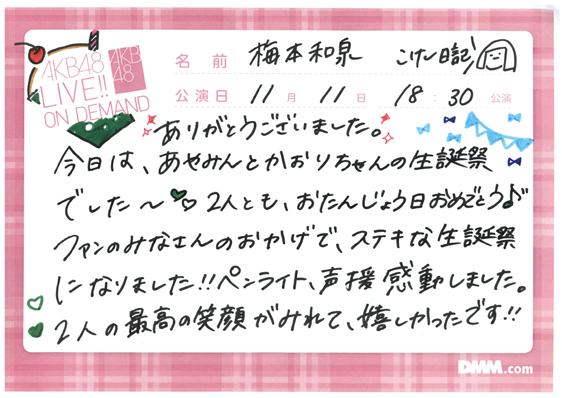 AKB48
LIVE!!
ON DEMAND
AKB
48
名前 梅本和泉 こけし日記
公演日 11月 11日 18:30 公演
ありがとうございました。
今日は、あやみんとかおりちゃんの生誕祭
でした〜 2人とも、おたんじょう日おめでとう♪
ファンのみなさんのおかげで、ステキな生誕祭
になりました!!ペンライト、声援感動しました。
2人の最高の笑顔がみれて、嬉しかったです!!
DMM.com